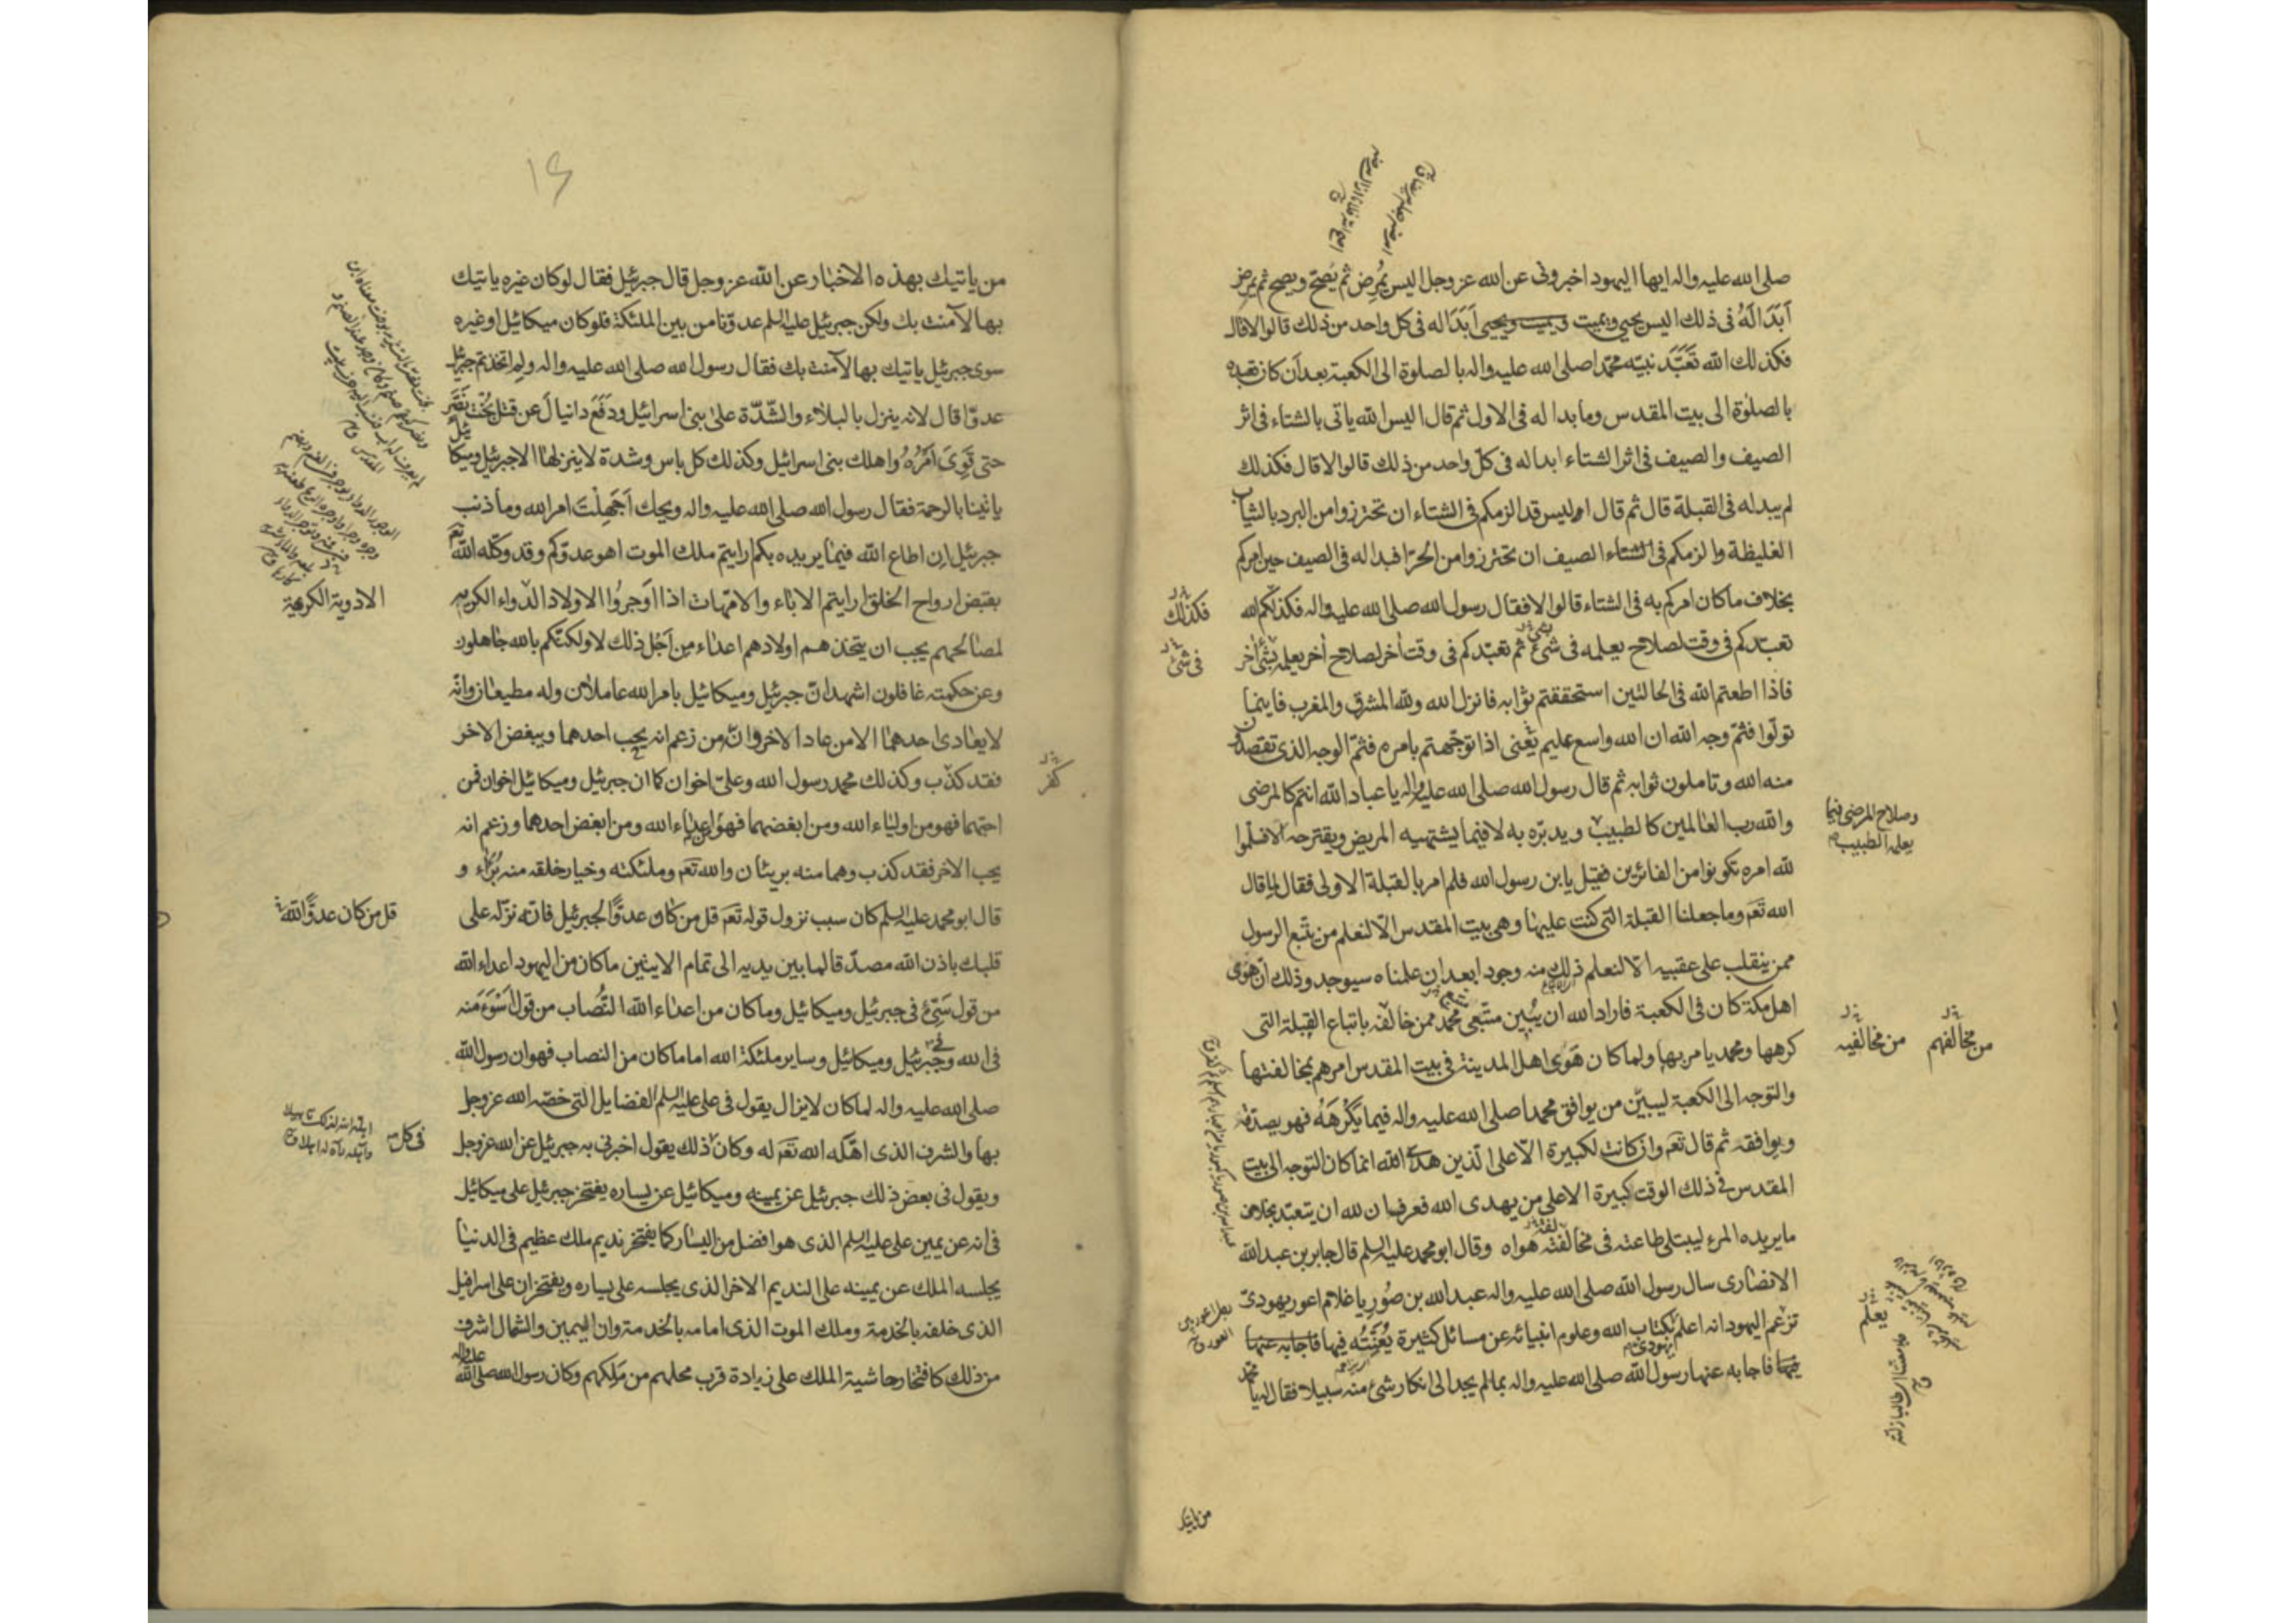 صلى الله عليه واله ايها اليهود اخبرونى عن الله عز وجل اليس يُمرِض ثم يُصِحّ ويصح ثم يمرض
اَبَدَا لَهُ فى ذلك اليس يحيى ويميت ويميت ويحيى اَبَدَا له فى كل واحد من ذلك قالوا لا قال
فكذلك الله تَعَبَّدَ نبيّه محمّدا صلى الله عليه واله بالصلوة الى الكعبة بعد اَن كان تعبده
بالصلوة الى بيت المقدس وما بدا له فى الاول ثم قال اليس الله ياتى بالشتاء فى اثر
الصيف والصيف فى اثر الشتاء ابدا له فى كلّ واحد من ذلك قالوا لا قال فكذلك
لم يبد له فى القبلة قال ثم قال اوليس قد الزمكم فى الشتاء ان تحترزوا من البرد بالثياب
الغليظة والزمكم فى الشتاء الصيف ان تحترزوا من الحرّ افبدا له فى الصيف حين امركم
بخلاف ما كان امركم به فى الشتاء قالوا لا فقال رسول الله صلى الله عليه واله فكذلكم الله
فكذلك
تعبّدكم فى وقت لصلاح يعلمه فى شئ ثم تعبّدكم فى وقت اخر لصلاح اخر يعلمه بشئ اخر
فى شئ
فاذا اطعتم الله فى الحالتين استحققتم ثوابه فانزل الله ولله المشرق والمغرب فاينما
تولّوا فثمّ وجه الله ان الله واسع عليم يَعْنى اذا توجّهتم بامره فثمّ الوجه الذى تقصدون
منه الله وتاملون ثوابه ثم قال رسول الله صلى الله عليه واله يا عباد الله انتم كالمرضى
والله رب العالمين كالطبيب ويدبّره به لا فيما يشتهيه المريض ويقترحه الا فسلّموا
وصلاح المرضى فيما
يعلمه الطبيب
لله امره تكونوا من الفائزين فقيل يابن رسول الله فلم امر بالقبلة الاولى فقال لما قال
الله تعَ وما جعلنا القبلة التى كنت عليها وهى بيت المقدس الّا لنعلم من يتّبع الرسول
ممن ينقلب على عقبيه الّا لنعلم ذلك منه وجودا بعد ان علمناه سيوجد وذلك انّ هَوى
اهل مكة كان فى الكعبة فاراد الله ان يُبين متّبعى محمّد ممن خالفه باتباع القبلة التى
من مخالفيه
من مخالفهم
كرهها ومحمد يامر بها ولما كان هَوَى اهل المدينة فى بيت المقدس امرهم بمخالفتها
والتوجه الى الكعبة ليبيّن من يوافق محمدا صلى الله عليه واله فيما يَكْرَهَهُ فهو يصدّقه
ويوافقه ثم قال تعَ وان كانت لكبيرة الّا على الّذين هدى الله انما كان التوجه الى بيت
المقدس فى ذلك الوقت كبيرة الا على من يهدى الله فعرف ان لله ان يتعبّد بخلاف
ما يريده المرء ليبتلى طاعته فى مخالفته هواه وقال ابو محمد عليه السلم قال جابر بن عبد الله
الانصارى سال رسول الله صلى الله عليه واله عبد الله بن صُورِيا غلام اعور يهودىّ
تزعم اليهود انه اعلم يهودى بكتاب الله وعلوم انبيائه عن مسائل كثيرة يُعَنِّتُه فيها فاجابه عنها
يعلم
فيها فاجابه عنها رسول الله صلى الله عليه واله بما لم يجد الى انكار شئ منه سبيلا فقال له يا محمّد
من ياتيك
١٤
من ياتيك بهذه الاخبار عن الله عز وجل قال جبرئيل فقال لو كان غيره ياتيك
بها لآمنت بك ولكن جبرئيل عليه السلم عدوّنا من بين الملئكة فلو كان ميكائيل او غيره
سوى جبرئيل ياتيك بها لآمنت بك فقال رسول الله صلى الله عليه واله ولِمَ اتخذتم جبرئيل
عدوّا قال لانه ينزل بالبلاء والشّدّة على بنى اسرائيل ودَفَعَ دانيالَ عن قتل بُخْتَ نَصَّر
حتى قَوِىَ اَمْرُهُ واهلك بنى اسرائيل وكذلك كل باس وشدة لا ينزلها الا جبرئيل وميكائيل
ياتينا بالرحمة فقال رسول الله صلى الله عليه واله ويحك اَجَهِلْتَ امر الله وما ذنب
جبرئيل اِن اطاع الله فيما يريده بكم ارايتم ملك الموت اهو عدوّكم وقد وكّله الله تعَ
بقبض ارواح الخلق ارايتم الاباء والامّهات اذا اَوجروُا الاولاد الدّواء الكريه
الادوية الكريهة
لمصالحهم يجب ان يتخذهم اولادهم اعداء من اَجْل ذلك لا ولكنّكم بالله جاهلون
وعن حكمته غافلون اشهد انّ جبرئيل وميكائيل بامر الله عاملان وله مطيعان وانّه
لا يعادى احدهما الا من عاد الاخر وانّ من زعم انه يحب احدهما ويبغض الاخر
فقد كذّب وكذلك محمد رسول الله وعلىّ اخوان كما ان جبرئيل وميكائيل اخوان فمن
كفر
احبّهما فهو من اولياء الله ومن ابغضهما فهو من اعداء الله ومن ابغض احدهما وزعم انه
يحب الاخر فقد كذب وهما منه بريئان والله تعَ وملئكته وخيار خلقه منه بُرَاء و
قال ابو محمد عليه السلم كان سبب نزول قوله تعَ قل من كان عدوًّا لجبرئيل فانّه نزّله على
قل من كان عدوًّا لله
قلبك باذن الله مصدّقا لما بين يديه الى تمام الايتين ما كان من اليهود اعداء الله
من قول سَيِّئ فى جبرئيل وميكائيل وما كان من اعداء الله النُّصاب من قول اَسْوَءَ منه
فى الله وفى جبرئيل وميكائيل وساير ملئكة الله اما ما كان من النصاب فهو ان رسول الله
صلى الله عليه واله لما كان لا يزال يقول فى على عليه السلم الفضايل التى خصّه الله عز وجل
بها والشرف الذى اهّله الله تعَ له وكان ذلك يقول اخبرنى به جبرئيل عن الله عز وجل
فى كل
ويقول فى بعض ذلك جبرئيل عن يمينه وميكائيل عن يساره يفتخر جبرئيل على ميكائيل
فى انه عن يمين على عليه السلم الذى هو افضل من اليسار كما يفتخر نديم ملك عظيم فى الدنيا
يجلسه الملك عن يمينه على النديم الاخر الذى يجلسه على يساره ويفتخران على اسرافيل
الذى خلفه بالخدمة وملك الموت الذى امامه بالخدمة وان اليمين والشمال اشرف
من ذلك كافتخار حاشية الملك على زيادة قرب محلهم من مَلِكهم وكان رسول الله صلى الله عليه واله